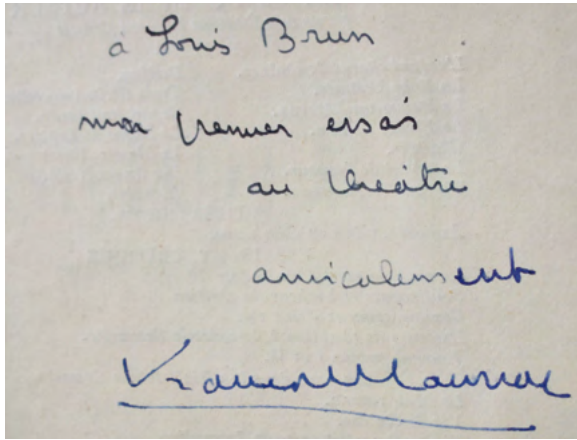 à Louis Brun
mon premier essai
au théâtre
amicalement
François Mauriac